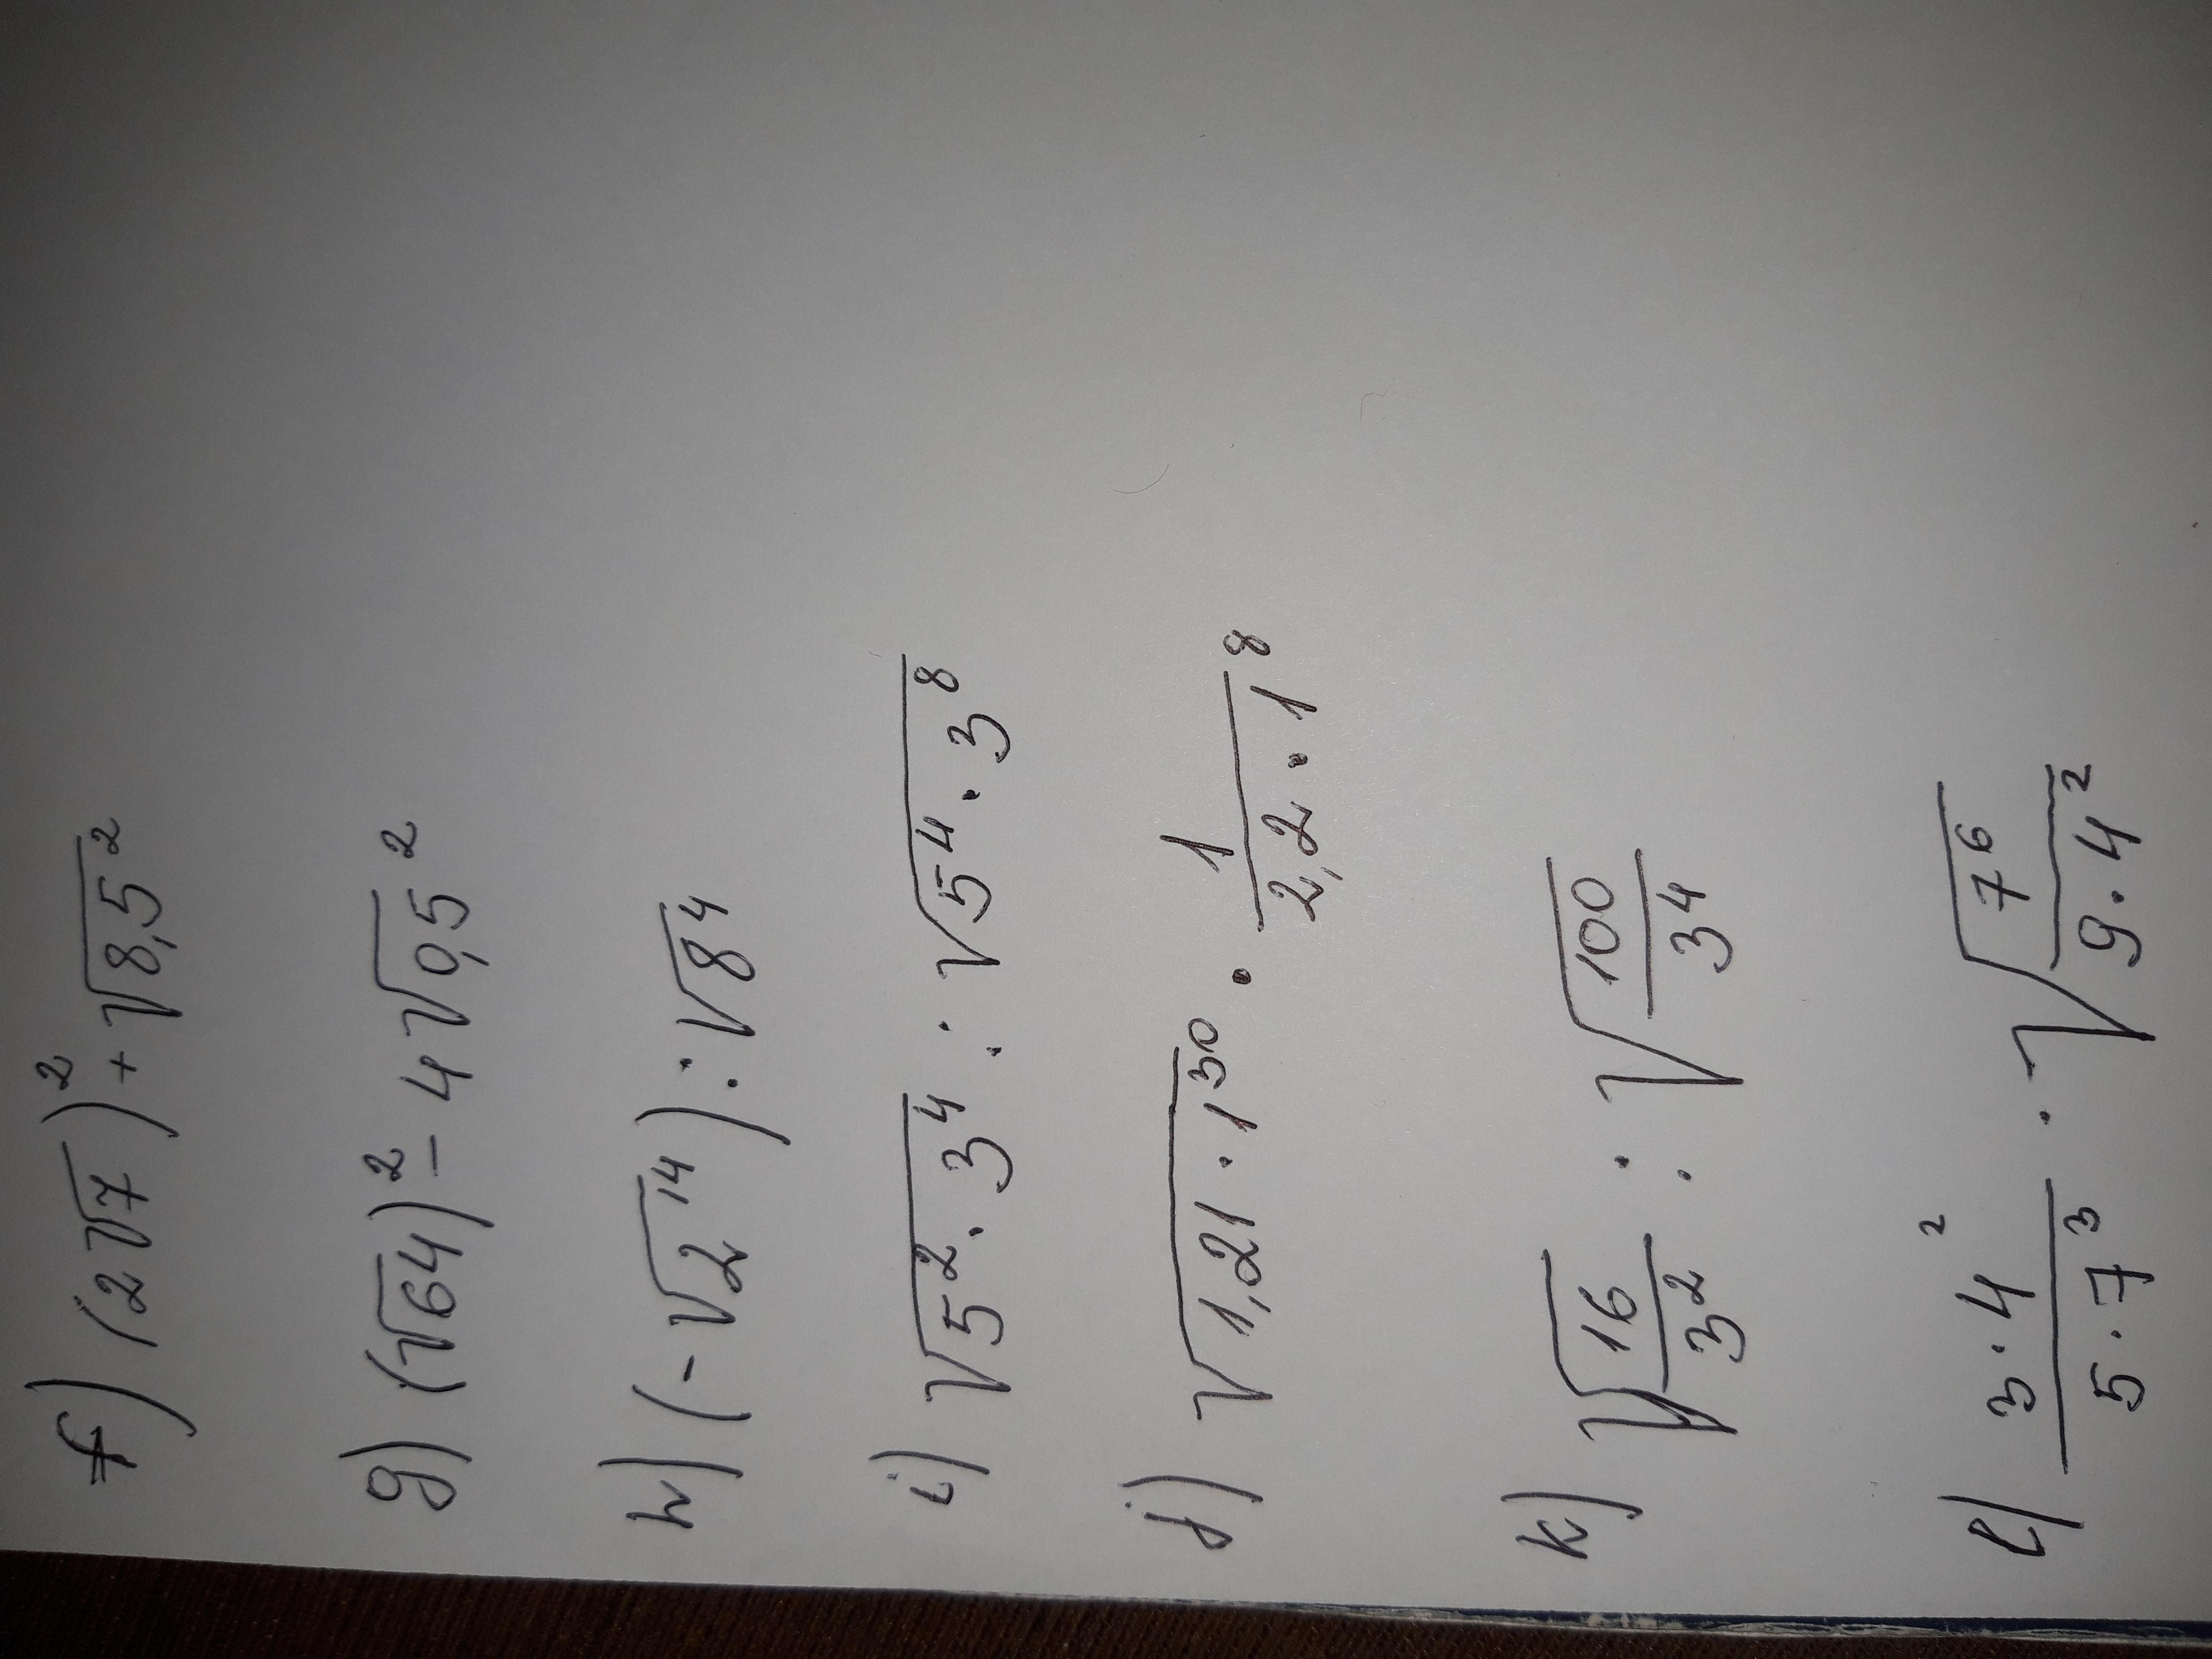 f) (2√7)² + √8,5²
g) (√64)² - 4√0,5²
h) (-√2¹⁴) : √8⁴
i) √5² · 3⁴ : √5⁴ · 3⁸
j) √1,21 · 1³⁰ · 1/2,2 · 1⁸
k) √16/3² : √100/3⁴
l) 3 · 4²/5 · 7³ · √7⁶/9 · 4²